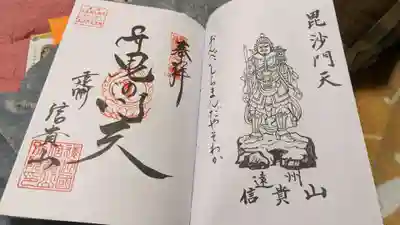 毘沙門天
おんべいしらまんだやそわか
遠州
信貴山
奉拝
毘沙門天
遠州
信貴山